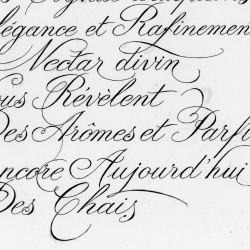 légance et Raffinement
Nectar divin
ous Révèlent
Des Arômes et Parf
ncore Aujourd'hui
Des Chais